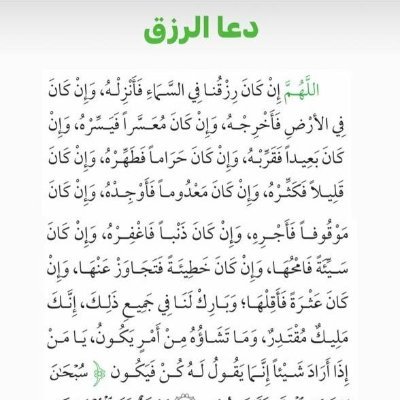 دعا الرزق
اللَّهُمَّ إِنْ كَانَ رِزْقُنا فِي السَّمَاءِ فَأَنْزِلْهُ، وَإِنْ كَانَ
فِي الأَرْضِ فَأَخْرِجْهُ، وَإِنْ كَانَ مُعَسَّراً فَيَسِّرْهُ، وَإِنْ
كَانَ بَعِيداً فَقَرِّبْهُ، وَإِنْ كَانَ حَرَاماً فَطَهِّرْهُ، وَإِنْ كَانَ
قَلِيلاً فَكَثِّرْهُ، وَإِنْ كَانَ مَعْدُوماً فَأَوْجِدْهُ، وَإِنْ كَانَ
مَوْقُوفاً فَأَجْرِهِ، وَإِنْ كَانَ ذَنْباً فَاغْفِرْهُ، وَإِنْ كَانَ
سَيِّئَةً فَامْحُهَا، وَإِنْ كَانَ خَطِيئَةً فَتَجَاوَزْ عَنْهَا، وَإِنْ
كَانَ عَثْرَةً فَأَقِلْهَا؛ وَبَارِكْ لَنَا فِي جَمِيعِ ذَلِكَ، إِنَّكَ
مَلِيكٌ مُقْتَدِرٌ، وَمَا تَشَاؤُهُ مِنْ أَمْرٍ يَكُونُ، يَا مَنْ
إِذَا أَرَادَ شَيْئاً إِنَّمَا يَقُولُ لَهُ كُنْ فَيَكُون ﴿ سُبْحَانَ